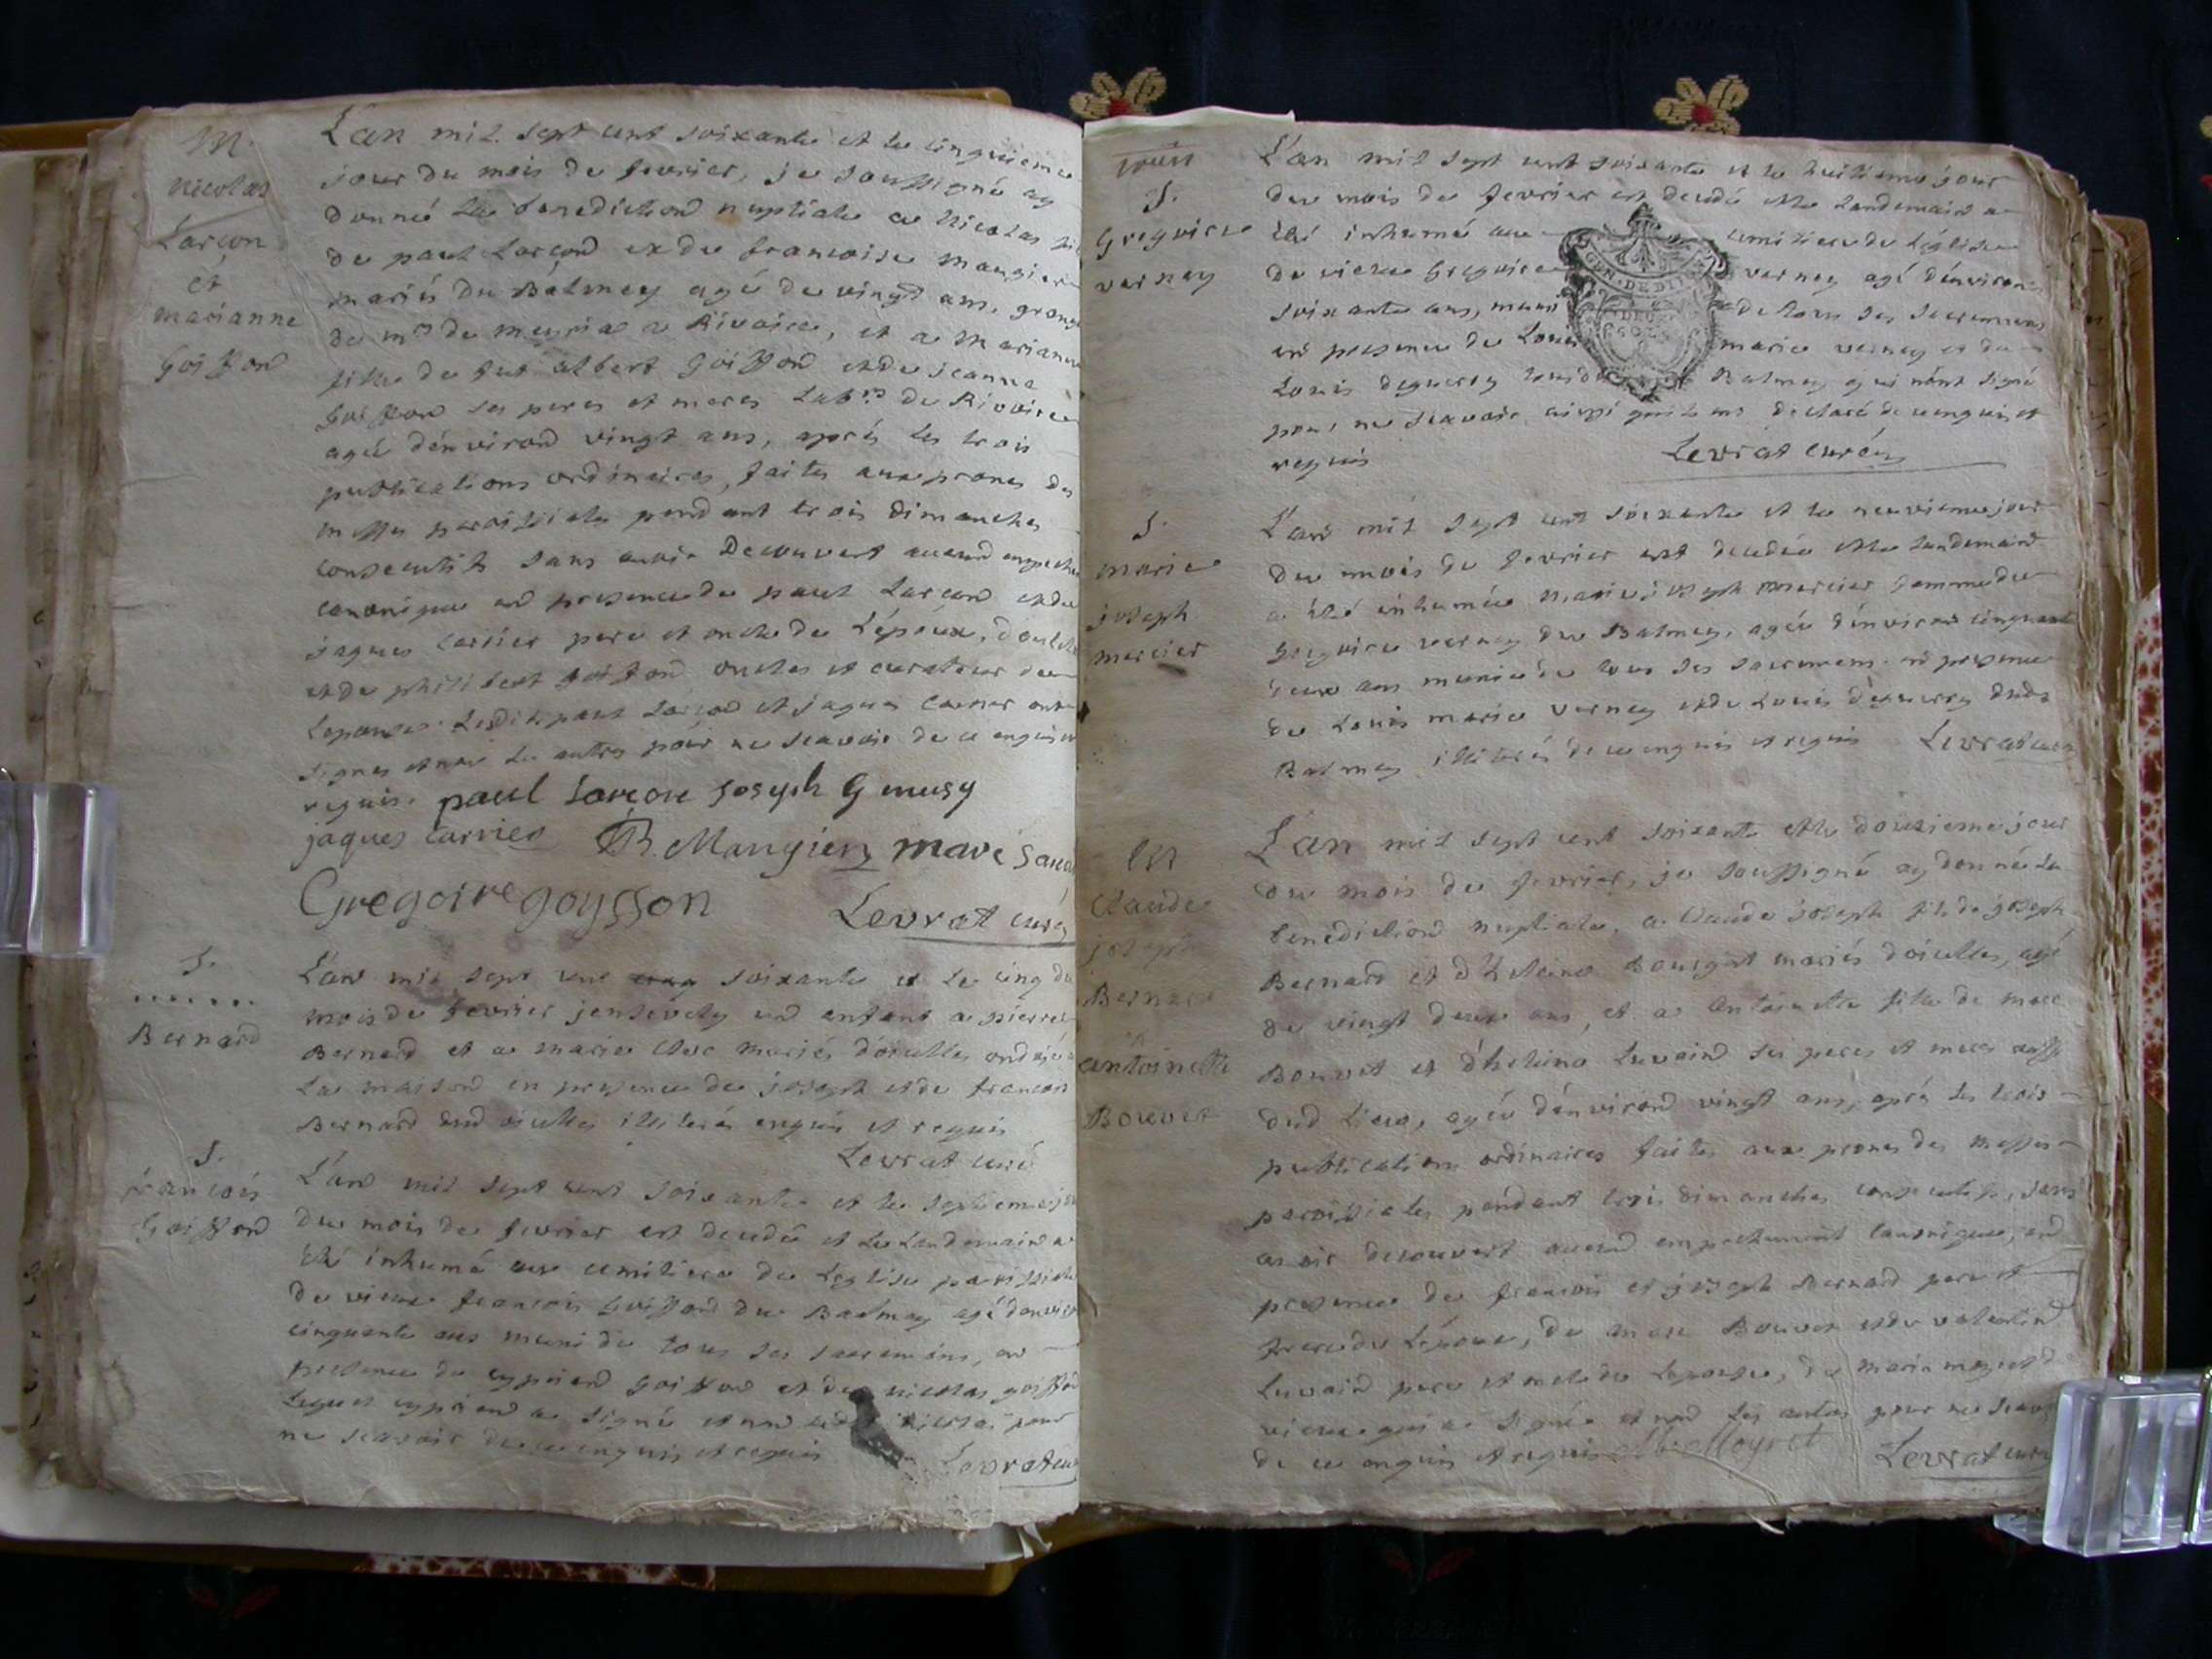 M.
nicolas
Larçon
et
marianne
Goiffon
L'an mil sept cent soixante et le cinquieme
jour du mois de fevrier, je soussigné ay
donné la benediction nuptiale a nicolas
de paul Larçond et de francoise mangier
mariés du Balmey agé de vingt ans, grang
de mr de meyria a Rivoire, et a Marianne
fille de fut albert Goiffond et de jeanne
Goiffond ses peres et meres Labrs de Rivoire
agée d'environd vingt ans, aprés les trois
publications ordinaires, faites aux prones des
messes paroissiales pendant trois dimanches
consecutifs sans avoir Decouvert aucund
canonique end presence de paul Larçond et de
jaques carrier pere et oncle de L'époux,
et de philibert goiffond oncles et curateur de
L'epouse. Lesdits paul Larçond et jaques carrier ont
signes et non les autres pour ne scavoir de ce enquis et
requis. paul Larçon joseph Gmusy
jaques carrier B. Mangien marc
Gregoire goysson Levrat curé
S.
.......
Bernard
L'and mil sept cent soixante et le cinq du
mois de fevrier jensevely und enfant a pierre
Bernard et a marie mariés d'oisselles ondoyé a
La maisond en presence de joseph et de francois
Bernard dud illiterés enquis et requis
Levrat curé
S.
francois
Goiffond
L'and mil sept cent soixante et le septieme jour
du mois de fevrier est decedé et le Landemaind a
été inhumé au cemitiere de Leglise paroissiale
de vieux francois Goiffond du Balmey agé d'environ
cinquante ans muni de tous ses sacremens, en
presence de cypriend goiffond et de nicolas goiffond
Lequel cypriend a signé et non pour
ne scavoir de ce enquis et requis Levrat curé
S.
Gregoire
verney
L'an mil sept cent soixante et le huitieme jour
du mois de fevrier est decedé et le Landemaind a
été inhumé au cemitiere de L'église
de vieux Gregoire verney agé d'environ
soixante ans, muni de tous ses sacremens
end presence de Louis marie verney et de
Louis deguerry Balmey qui n'ont signé
pour ne scavoir ainsi qu'ils ont declaré de ce enquis et
requis Levrat curé
S.
marie
joseph
mercier
L'and mil sept cent soixante et le neuvieme jour
du mois de fevrier est decedée et le Landemaind
a été inhumée marie joseph mercier femme de
Gregoire verney du Balmey, agée d'environ cinquante
deux ans munie de tous ses sacremens end presence
de Louis marie verney et de Louis deguerry dud
Balmey illiterés de ce enquis et requis Levrat curé
M
Claude
joseph
Bernard
et
antoinette
Bouvet
L'an mil sept cent soixante et le douzieme jour
du mois de fevrier, je soussigné ay donné la
benediction nuptiale, a Claude joseph fils de joseph
Bernard et d' mariés d'oisselles, agé
de vingt deux ans, et a antoinette fille de marc
Bouvet et d'helaine Luvaind ses peres et meres aussy
dud Lieu, agée d'environd vingt ans, aprés les trois
publications ordinaires faites aux prones des messes
paroissiales pendant trois dimanches consecutifs, sans
avoir decouvert aucund empechement canonique, end
presence de francois et joseph Bernard pere et
frere de L'époux, de marc Bouvet et de valentin
Luvaind pere et oncle de L'epouse, de
vieux qui a signé et non les autres pour ne scavoir
de ce enquis et requis Moyret Levrat curé
GEN. DE DIJ